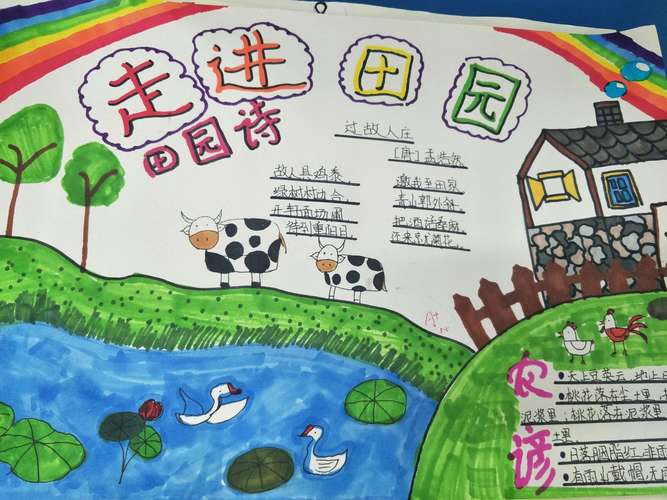 走进田园
田园诗
过故人庄
[唐]孟浩然
故人具鸡黍，邀我至田家
绿树村边合，青山郭外斜
开轩面场圃 把酒话桑麻
待到重阳日，还来就菊花
农谚
天上豆荚云，地上
桃花落在尘土里
泥浆里；桃花落在泥浆里
土里
日落胭脂红，非雨
有雨山戴帽，无